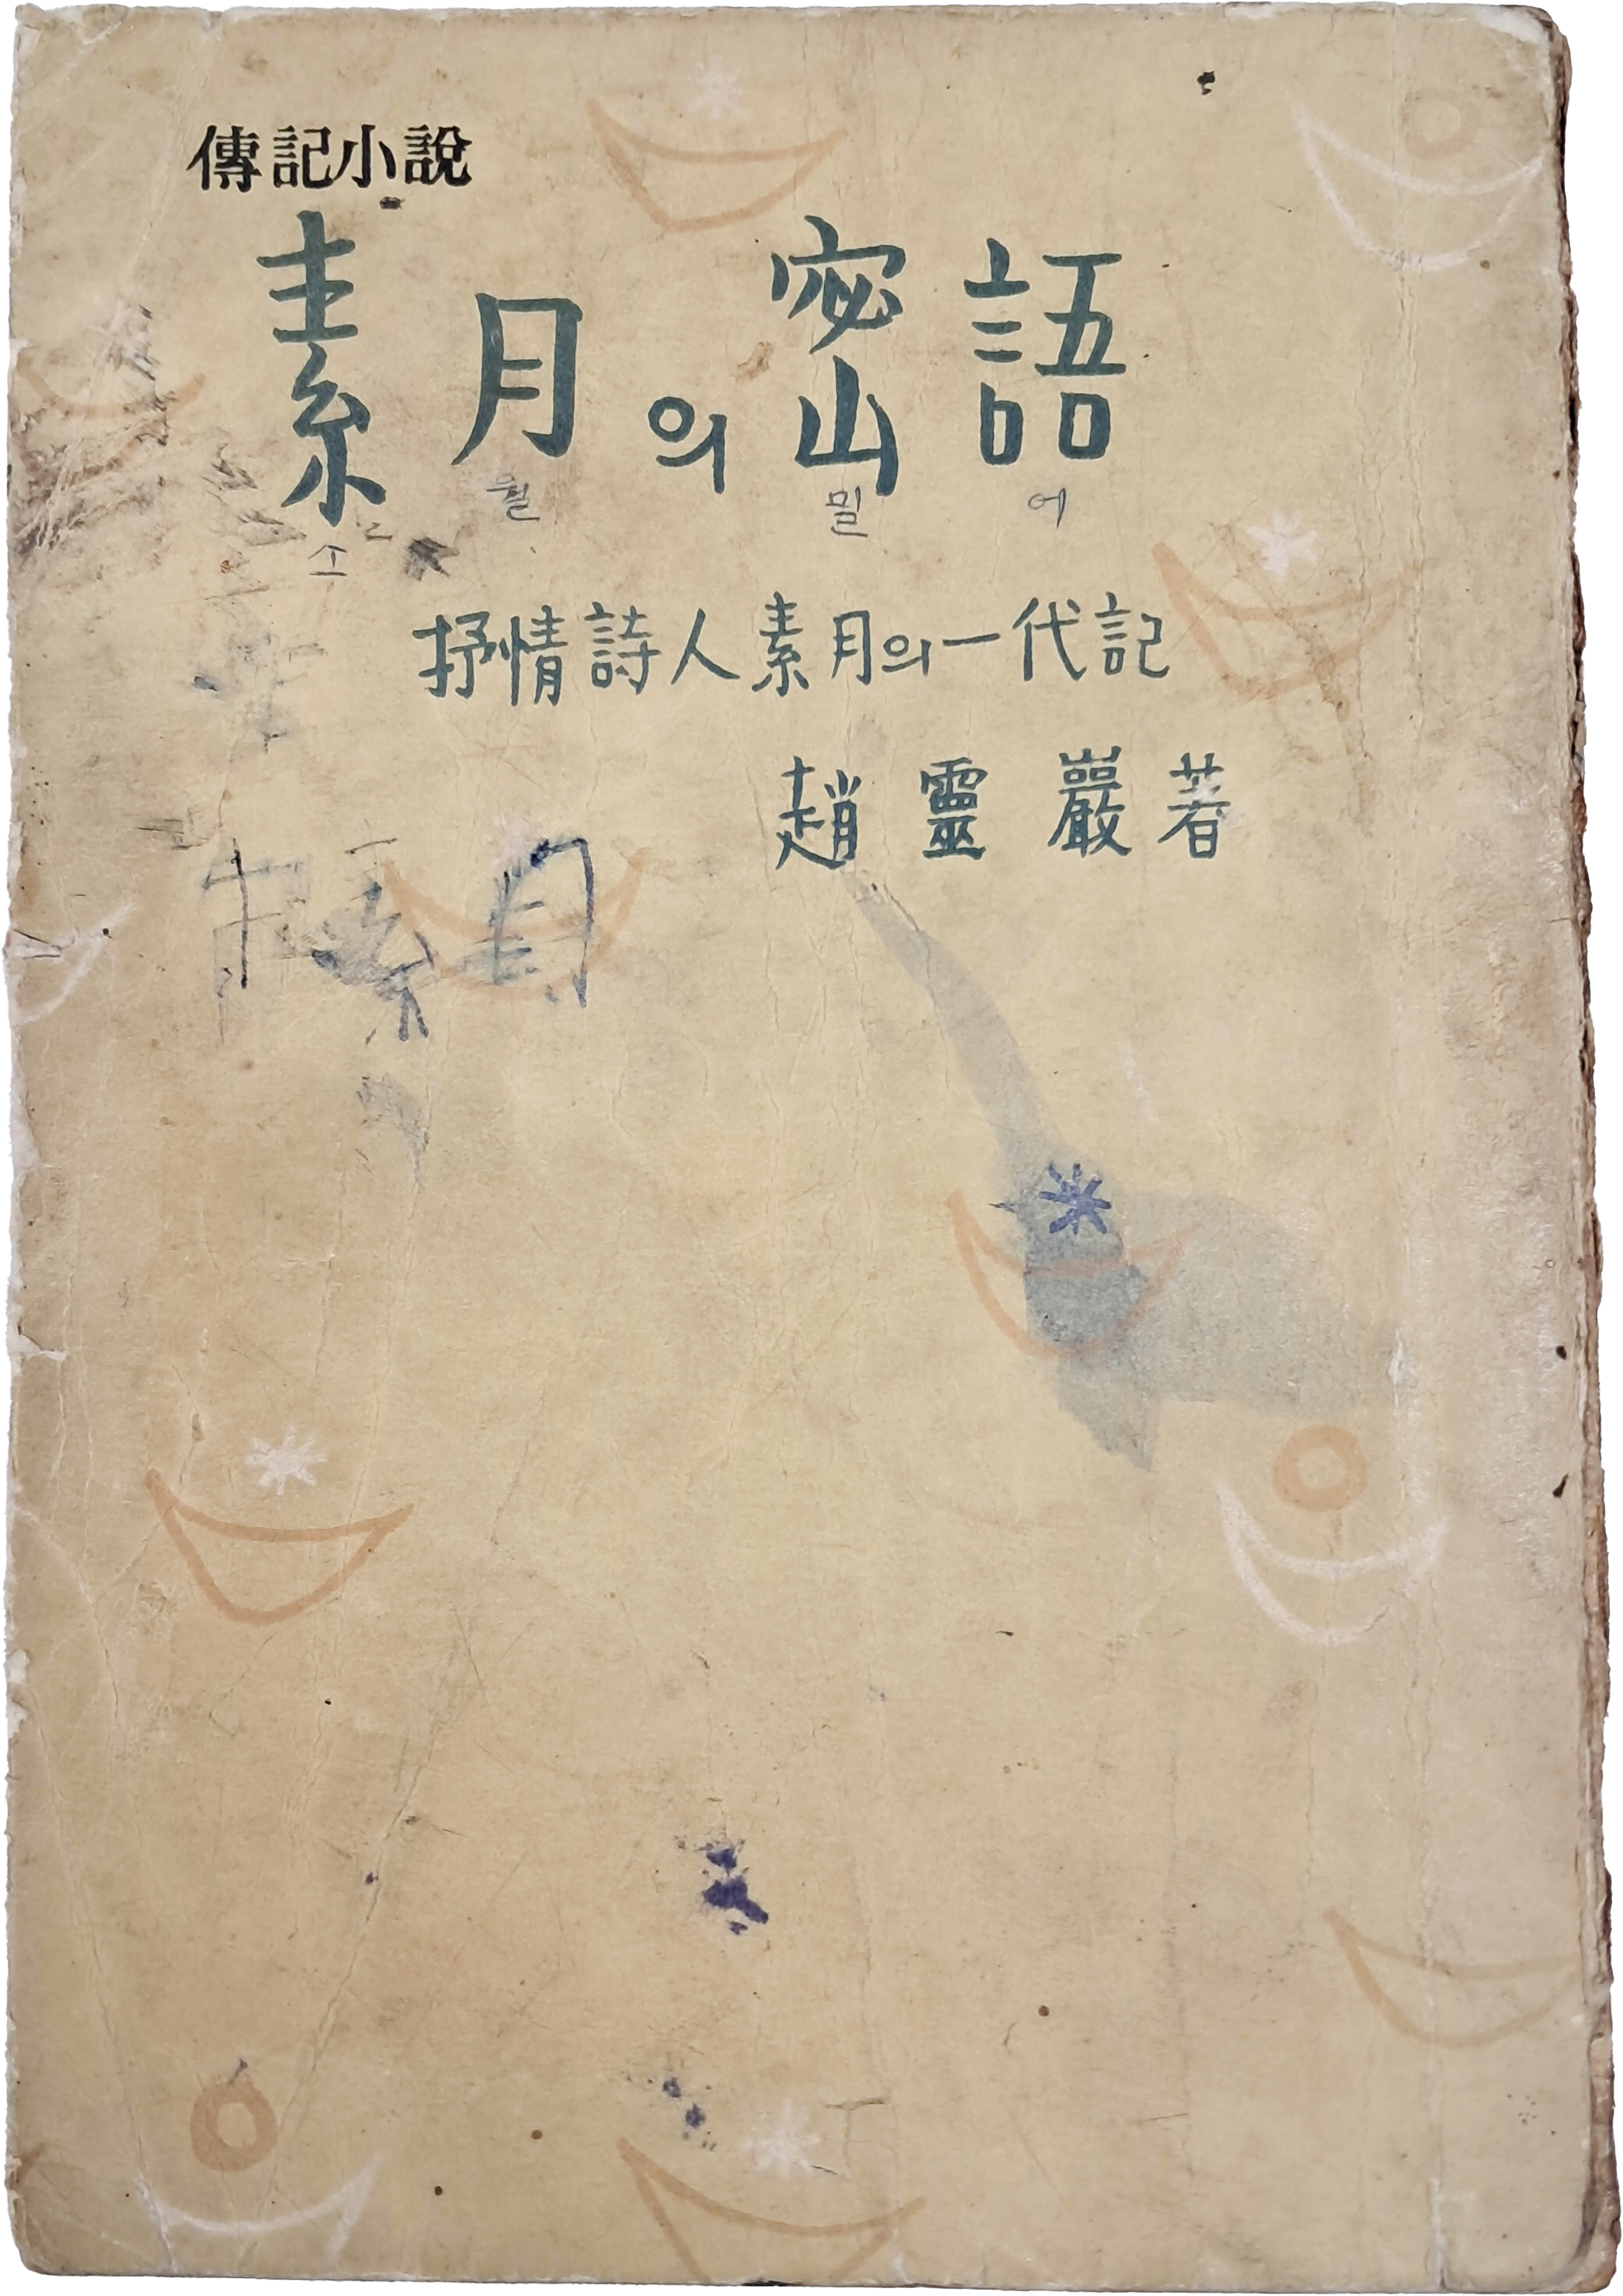 傳記小說
素月의密語
소 월 밀 어
抒情詩人素月의一代記
趙靈巖著
素月